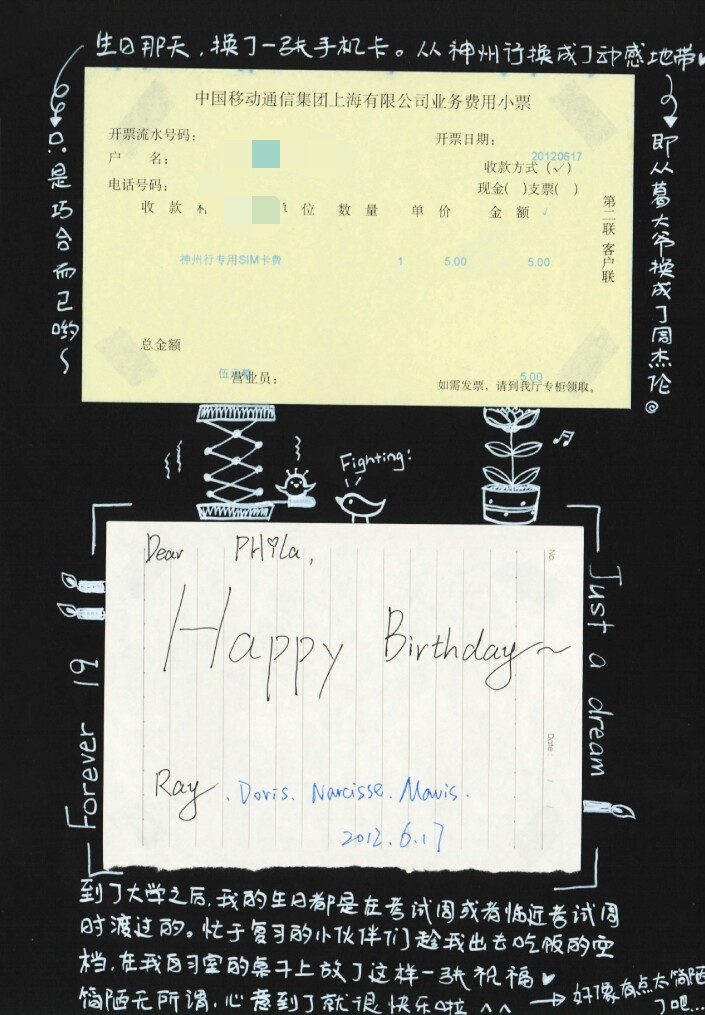 生日那天，换了一张手机卡。从神州行换成了动感地带♥
只是巧合而已哟～
即从葛大爷换成了周杰伦
中国移动通信集团上海有限公司业务费用小票
开票流水号码：
开票日期：
20120617
户 名：
收款方式（✓）
电话号码：
现金( )支票( )
收 款 单 位 数 量 单 价 金 额
第二联 客户联
神州行专用SIM卡费 1 5.00 5.00
总金额
营业员： 5.00
如需发票，请到我厅专柜领取。
Fighting!
Dear PHila,
Happy Birthday~
No
Date / /
Ray. Doris. Narcisse. Mavis.
2012.6.17
Forever 19
Just a dream
到了大学之后，我的生日都是在考试周或者临近考试周
时渡过的。忙于复习的小伙伴们趁我出去吃饭的空
档，在我自习室的桌子上放了这样一张祝福♥
简陋无所谓，心意到了就很快乐啦 ^^ → 好像有点太简陋
了吧...